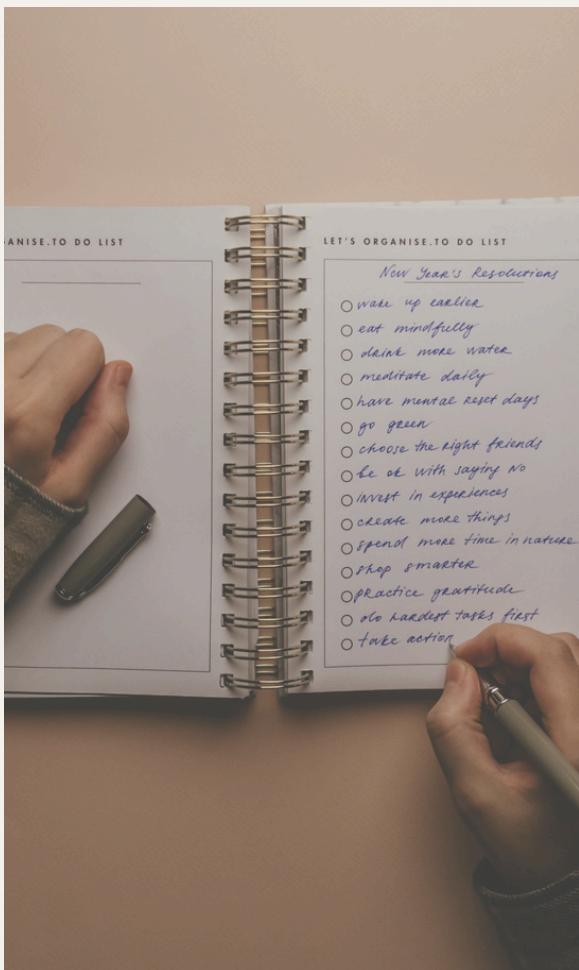 ANISE.TO DO LIST
LET'S ORGANISE.TO DO LIST
New Year's Resolutions
wake up earlier
eat mindfully
drink more water
meditate daily
have mental reset days
go green
choose the right friends
be ok with saying No
invest in experiences
create more things
spend more time in nature
shop smarter
practice gratitude
do hardest tasks first
take action